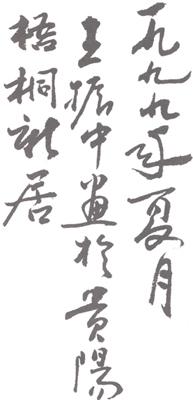 一九九九年夏月
王振中畫於貴陽
梧桐新居